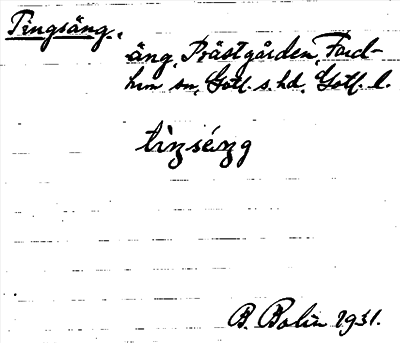 Tingsäng.
äng, Prästgården, Fard-
hem sn, Gotl. s. hd, Gotl. l.
tiŋséŋg
B. Bolin 1931.